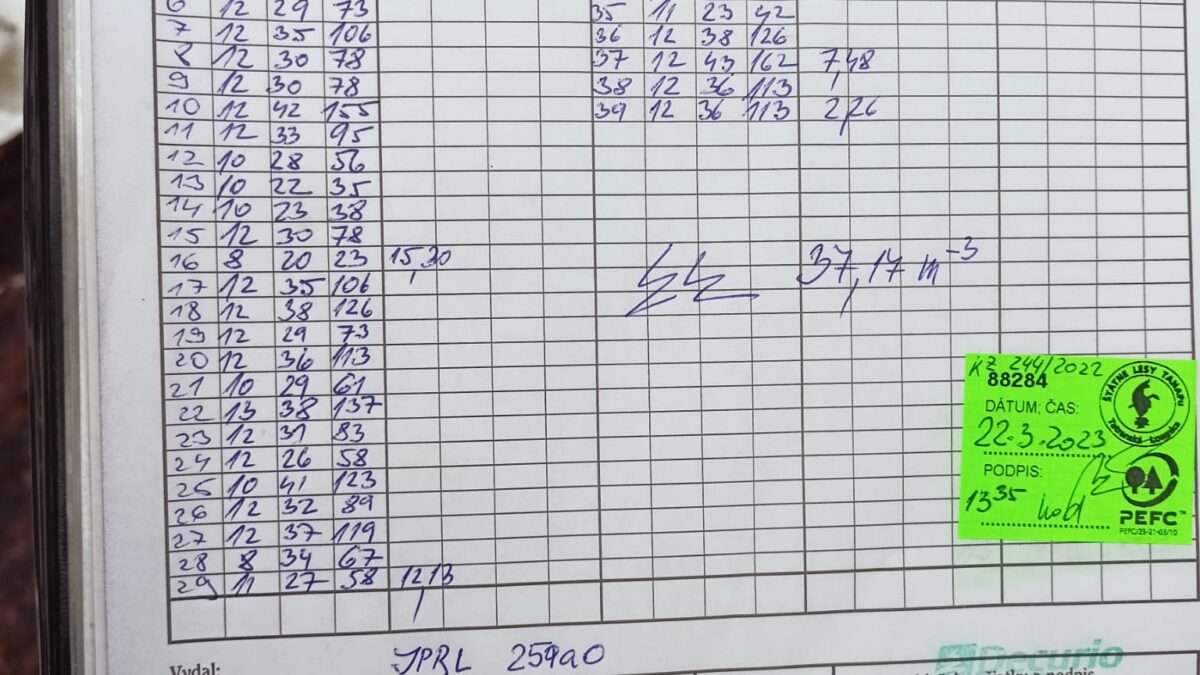 6 12 29 73
7 12 35 106
8 12 30 78
9 12 30 78
10 12 42 155
11 12 33 95
12 10 28 56
13 10 22 35
14 10 23 38
15 12 30 78
16 8 20 23 15,30
17 12 35 106
18 12 38 126
19 12 29 73
20 12 36 113
21 10 29 61
22 13 38 137
23 12 31 83
24 12 26 58
25 10 41 123
26 12 32 89
27 12 37 119
28 8 34 67
29 11 27 58 12,13
35 11 23 42
36 12 38 126
37 12 43 162 7,48
38 12 36 113
39 12 36 113 2,26
37,17 m-3
KZ 244/2022
88284
DÁTUM; ČAS:
22.3.2023
PODPIS:
13 35
ŠTÁTNE LESY TANAPu
Tatranská Lomnica
PEFC™
PEFC/23-21-03/10
Vydal:
JPRL 259a0
Decurio
a podpis